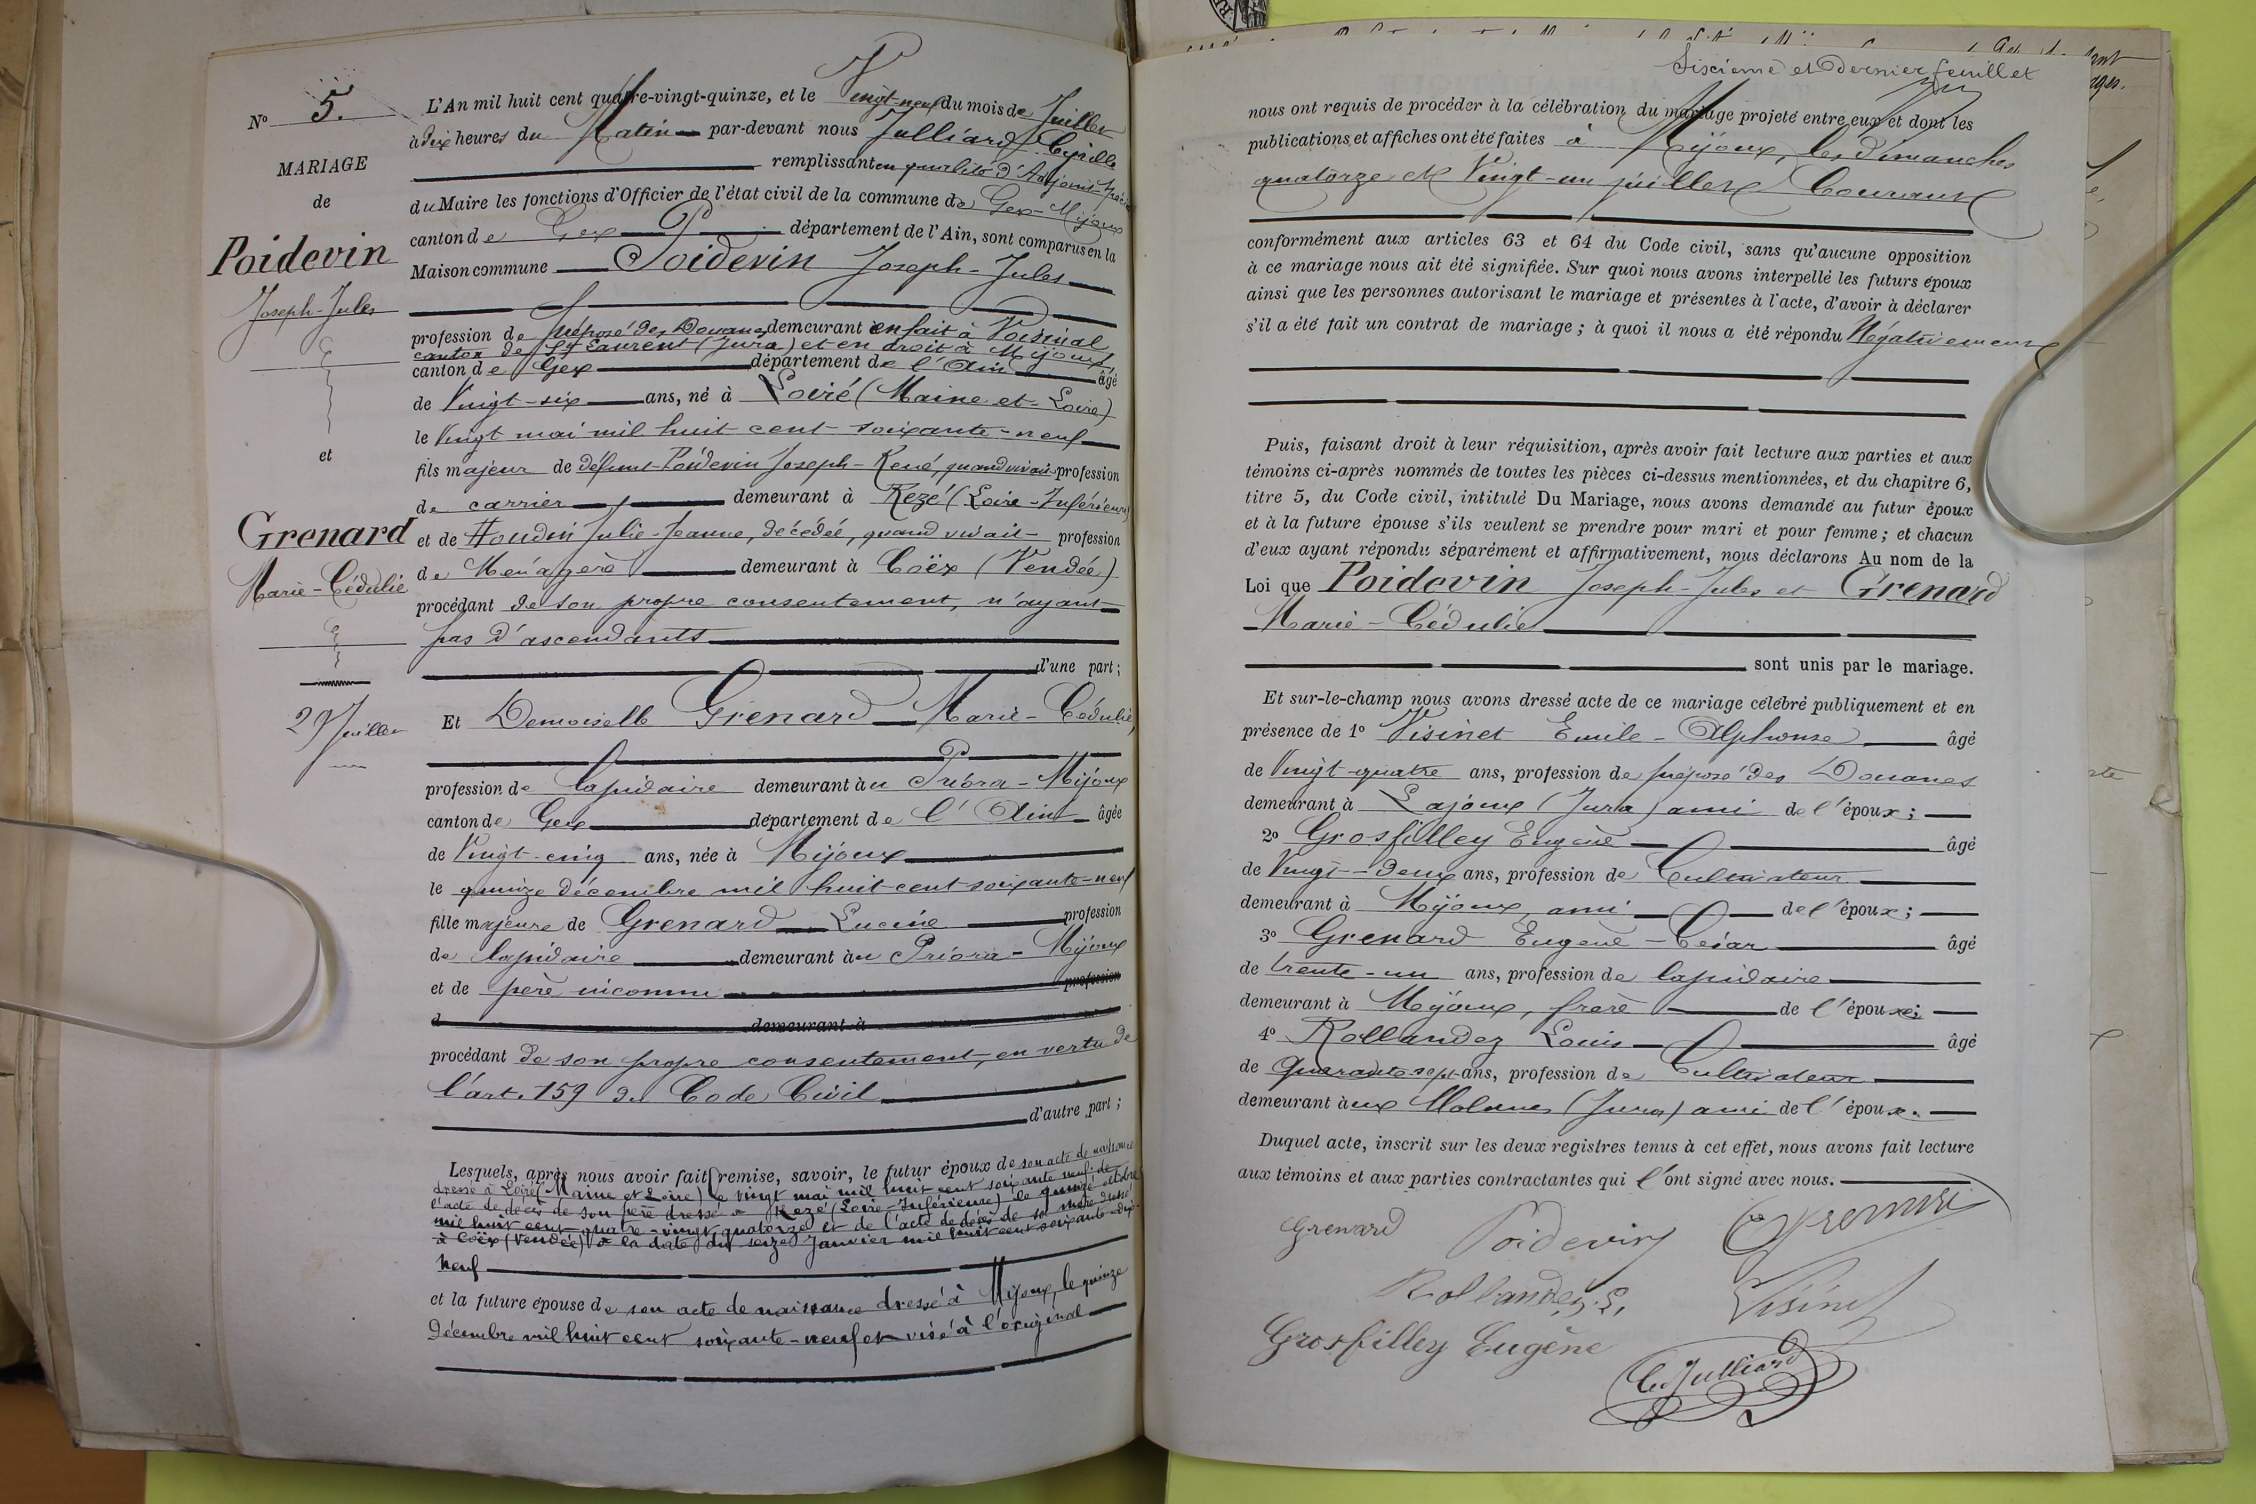 N° 5.
MARIAGE
de
Poidevin
Joseph-Jules
et
Grenard
Marie-Cédulie
29 Juillet
L'An mil huit cent quatre-vingt-quinze, et le Vingt-neuf du mois de Juillet
à dix heures du Matin par-devant nous Julliard Cyrille
remplissant en qualité d'Adjoint
du Maire les fonctions d'Officier de l'état civil de la commune de Gex-Mijoux
canton de Gex département de l'Ain, sont comparus en la
Maison commune Poidevin Joseph-Jules
profession de préposé des Douanes demeurant en fait à
canton de St Laurent (Jura) et en droit à Mijoux,
canton de Gex département de l'Ain âgé
de Vingt-six ans, né à Loiré (Maine-et-Loire)
le Vingt mai mil huit cent soixante-neuf
fils majeur de défunt Poidevin Joseph-René, quand vivait profession
de carrier demeurant à Rezé (Loire-Inférieure)
et de Houdin Julie-Jeanne, décédée, quand vivait profession
de Ménagère demeurant à Coëx (Vendée)
procédant de son propre consentement, n'ayant
pas d'ascendants
d'une part;
Et Demoiselle Grenard Marie-Cédulie
profession de lapidaire demeurant au Priora-Mijoux
canton de Gex département de l'Ain âgée
de Vingt-cinq ans, née à Mijoux
le quinze décembre mil huit cent soixante-neuf
fille majeure de Grenard Lucine profession
de lapidaire demeurant au Priora-Mijoux
et de père inconnu profession
d demeurant à
procédant de son propre consentement, en vertu de
l'art. 159 du Code Civil
d'autre part;
Lesquels, après nous avoir fait remise, savoir, le futur époux de son acte de naissance
dressé à Loiré (Maine et Loire) le vingt mai mil huit cent soixante neuf de
l'acte de décès de son père dressé à Rezé (Loire-Inférieure) le quinze octobre
mil huit cent quatre-vingt quatorze et de l'acte de décès de sa mère dressé
à Coëx (Vendée) à la date du seize Janvier mil huit cent soixante-dix-
neuf
et la future épouse de son acte de naissance dressé à Mijoux, le quinze
Décembre mil huit cent soixante-neuf et visé à l'original
Sixième et Dernier feuillet
nous ont requis de procéder à la célébration du mariage projeté entre eux et dont les
publications et affiches ont été faites à Mijoux, les dimanches
quatorze et Vingt-un juillet Courant
conformément aux articles 63 et 64 du Code civil, sans qu'aucune opposition
à ce mariage nous ait été signifiée. Sur quoi nous avons interpellé les futurs époux
ainsi que les personnes autorisant le mariage et présentes à l'acte, d'avoir à déclarer
s'il a été fait un contrat de mariage; à quoi il nous a été répondu Négativement
Puis, faisant droit à leur réquisition, après avoir fait lecture aux parties et aux
témoins ci-après nommés de toutes les pièces ci-dessus mentionnées, et du chapitre 6,
titre 5, du Code civil, intitulé Du Mariage, nous avons demandé au futur époux
et à la future épouse s'ils veulent se prendre pour mari et pour femme; et chacun
d'eux ayant répondu séparément et affirmativement, nous déclarons Au nom de la
Loi que Poidevin Joseph-Jules et Grenard
Marie-Cédulie
sont unis par le mariage.
Et sur-le-champ nous avons dressé acte de ce mariage célébré publiquement et en
présence de 1° Visinet Emile-Alphonse âgé
de Vingt-quatre ans, profession de préposé des Douanes
demeurant à Lajoux (Jura) ami de l'époux;
2° Grosfilley Eugène âgé
de Vingt-deux ans, profession de Cultivateur
demeurant à Mijoux, ami de l'époux;
3° Grenard Eugène-César âgé
de trente-un ans, profession de lapidaire
demeurant à Mijoux, frère de l'épouse;
4° Rollandez Louis âgé
de Quarante sept ans, profession de Cultivateur
demeurant aux Molunes (Jura) ami de l'époux.
Duquel acte, inscrit sur les deux registres tenus à cet effet, nous avons fait lecture
aux témoins et aux parties contractantes qui l'ont signé avec nous.
Grenard Poidevin
Rollandez L. Visinet
Grosfilley Eugène
C. Julliard